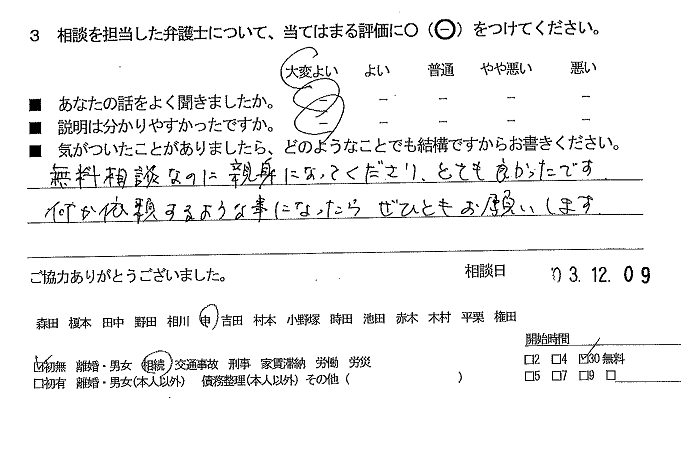 3 相談を担当した弁護士について、当てはまる評価に○(⊖)をつけてください。
大変よい よい 普通 やや悪い 悪い
■ あなたの話をよく聞きましたか。 － － － － －
■ 説明は分かりやすかったですか。 － － － － －
■ 気がついたことがありましたら、どのようなことでも結構ですからお書きください。
無料相談なのに親身になってくださり、とても良かったです。
何か依頼するような事になったら ぜひともお願いします。
ご協力ありがとうございました。 相談日 03.12.09
森田 榎本 田中 野田 相川 申 吉田 村本 小野塚 時田 池田 赤木 木村 平栗 権田
開始時間
☑初無 離婚・男女 相続 交通事故 刑事 家賃滞納 労働 労災 □2 □4 ☑30 無料
□初有 離婚・男女(本人以外) 債務整理(本人以外) その他 ( ) □5 □7 □9 □